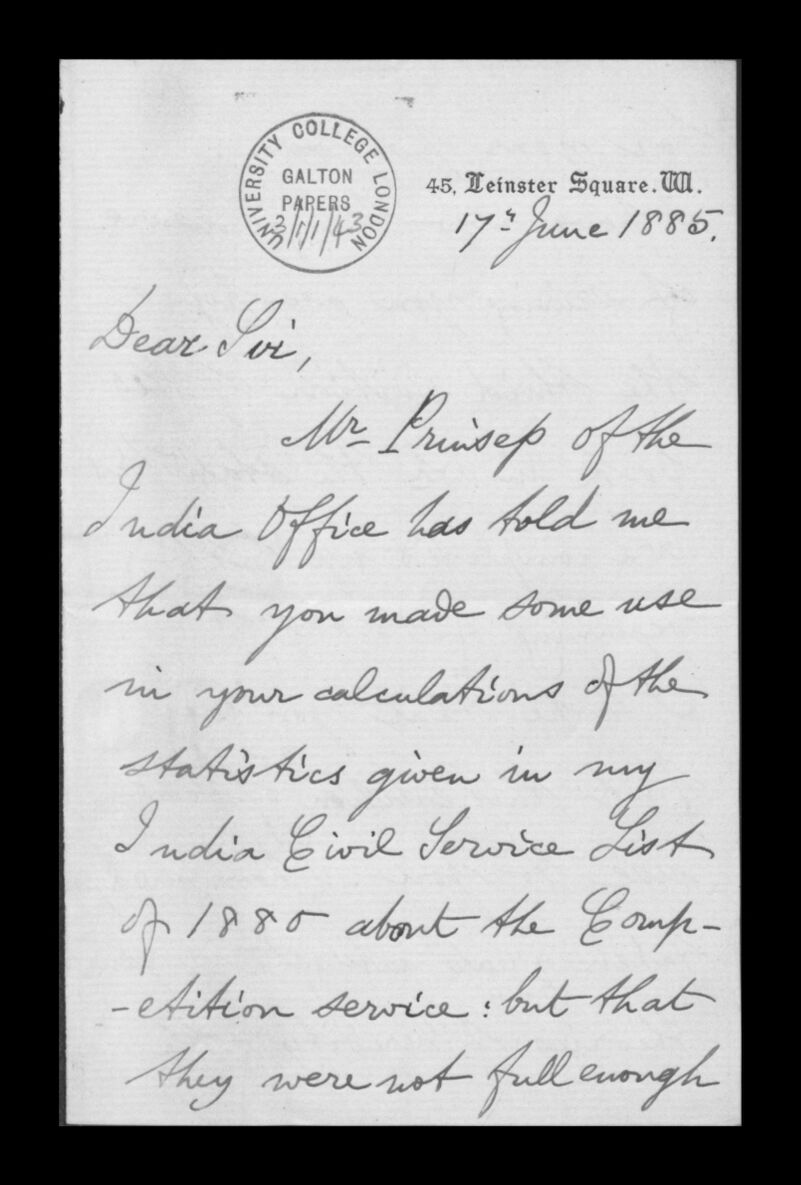 UNIVERSITY COLLEGE LONDON
GALTON
PAPERS
3/1/1/43
45, Leinster Square. W.
17th June 1885.
Dear Sir,
Mr Prinsep of the
India Office has told me
that you made some use
in your calculations of the
statistics given in my
India Civil Service List
of 1880 about the Comp-
-etition service: but that
they were not full enough